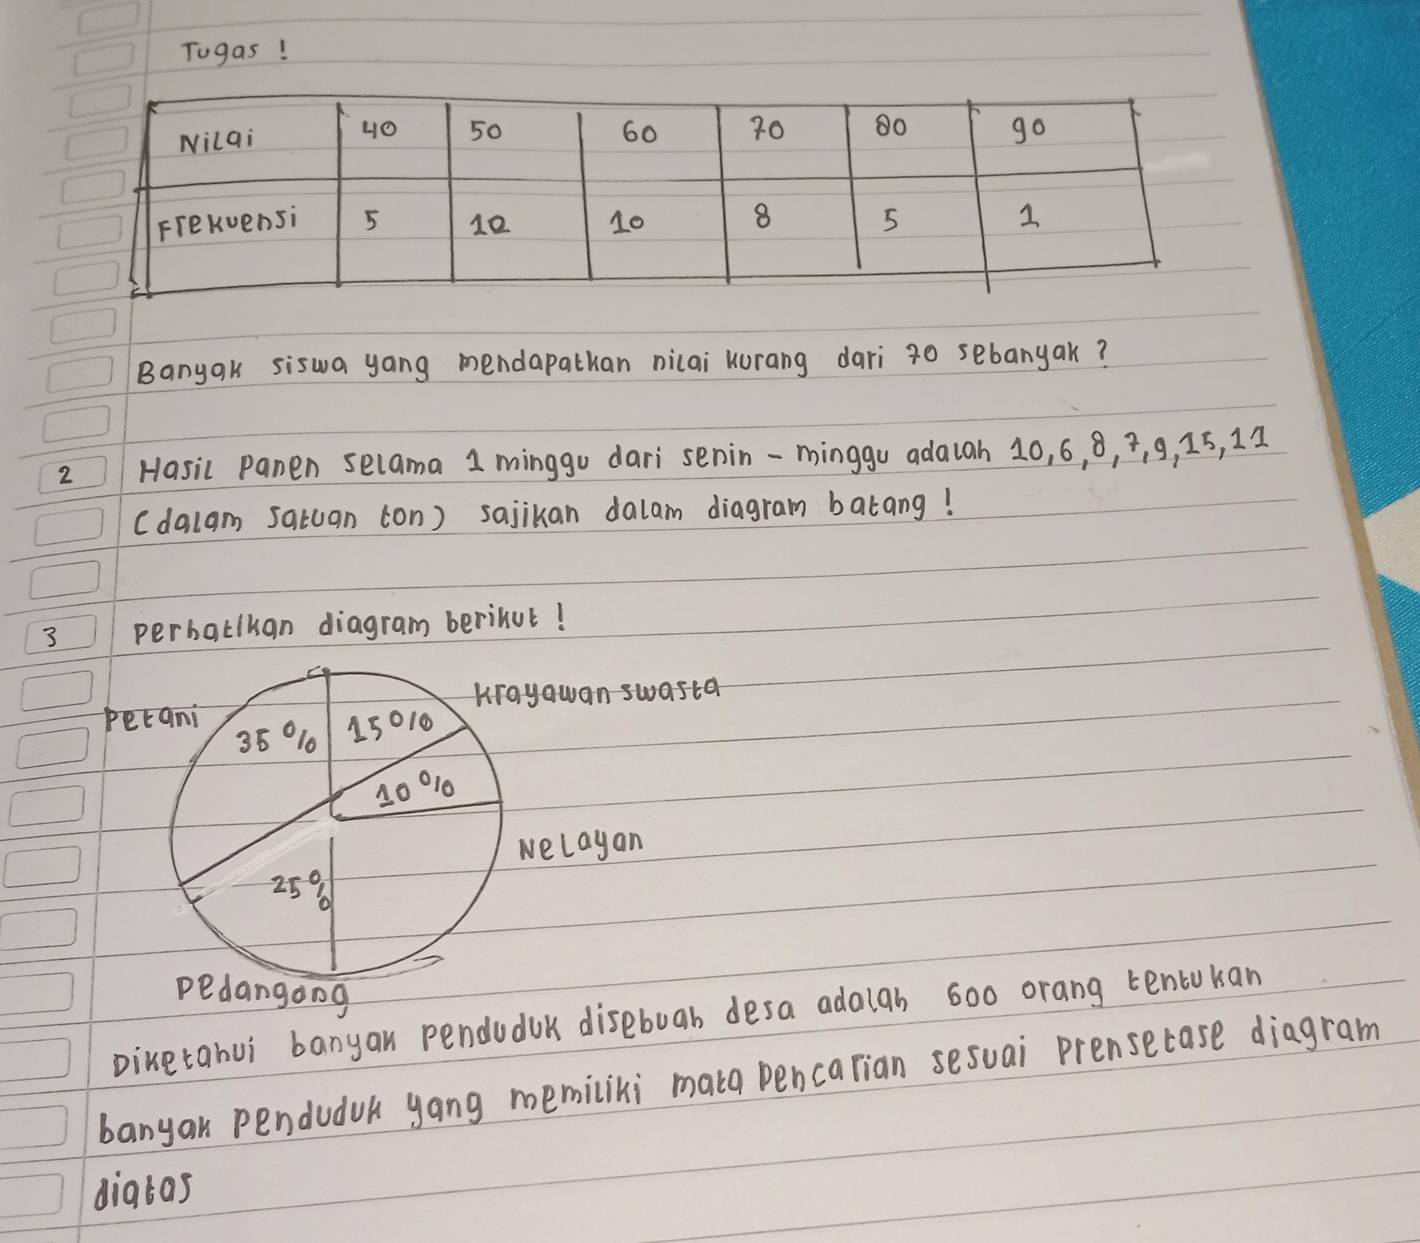 Tugas !
Nilai 40 50 60 70 80 90
Frekuensi 5 10 10 8 5 1
Banyak siswa yang mendapatkan nilai kurang dari 70 sebanyak ?
2 Hasil Panen selama 1 minggu dari senin - minggu adalah 10, 6, 8, 7, 9, 15, 11
(dalam satuan ton) sajikan dalam diagram batang !
3 perhatikan diagram berikut !
Petani 35% 15% Krayawan swasta
10%
Nelayan
25%
Pedangang
Diketahui banyak penduduk disebuah desa adalah 600 orang tentukan
banyak penduduk yang memiliki mata pencarian sesuai Prensetase diagram
diatas